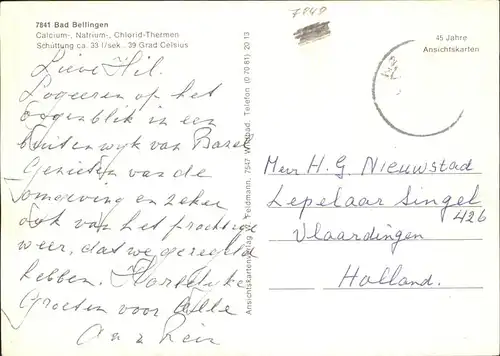 7841 Bad Bellingen
Calcium-, Natrium-, Chlorid-Thermen
Schüttung ca. 33 l/sek., 39 Grad Celsius
Lieve Hil.
Logeeren op het
oogenblik in een
buitenwyk van Basel
Genieten van de
omgeving en zeker
ook van het prachtige
weer, dat we geregeld
hebben. Hartelyke
Groeten voor Alle
An
Ansichtskartenverlag W. Feldmann, 7547 Wildbad, Telefon (0 70 81) 20 13
45 Jahre
Ansichtskarten
Mevr H. G. Nieuwstad
Lepelaar Singel
426
Vlaardingen
Holland.